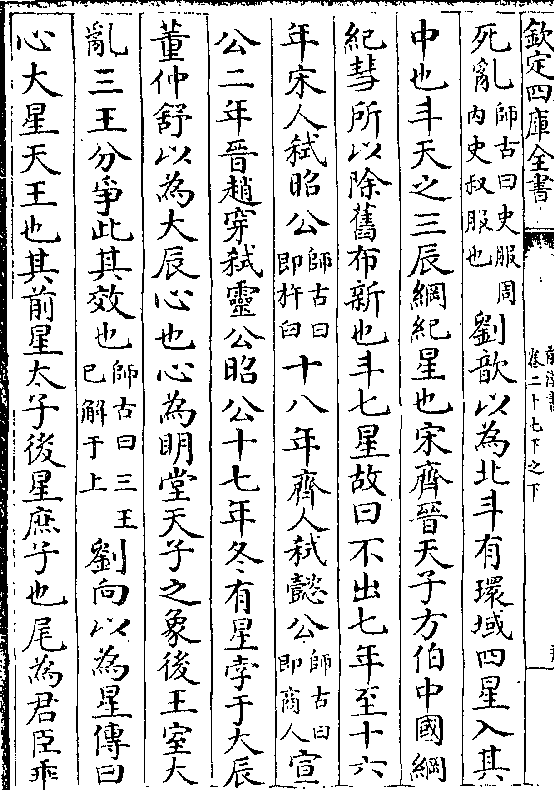 欽定四庫全書
前漢書
卷二十七下之下
死亂師古曰史服周內史叔服也劉歆以為北斗有環域四星入其
中也斗天之三辰綱紀星也宋齊晉天子方伯中國綱
紀彗所以除舊布新也斗七星故曰不出七年至十六
年宋人弒昭公師古曰即杵臼十八年齊人弒懿公師古曰即商人宣
公二年晉趙穿弒靈公昭公十七年冬有星孛于大辰
董仲舒以為大辰心也心為明堂天子之象後王室大
亂三王分爭此其效也師古曰三王已解于上劉向以為星傳曰
心大星天王也其前星太子後星庶子也尾為君臣乖